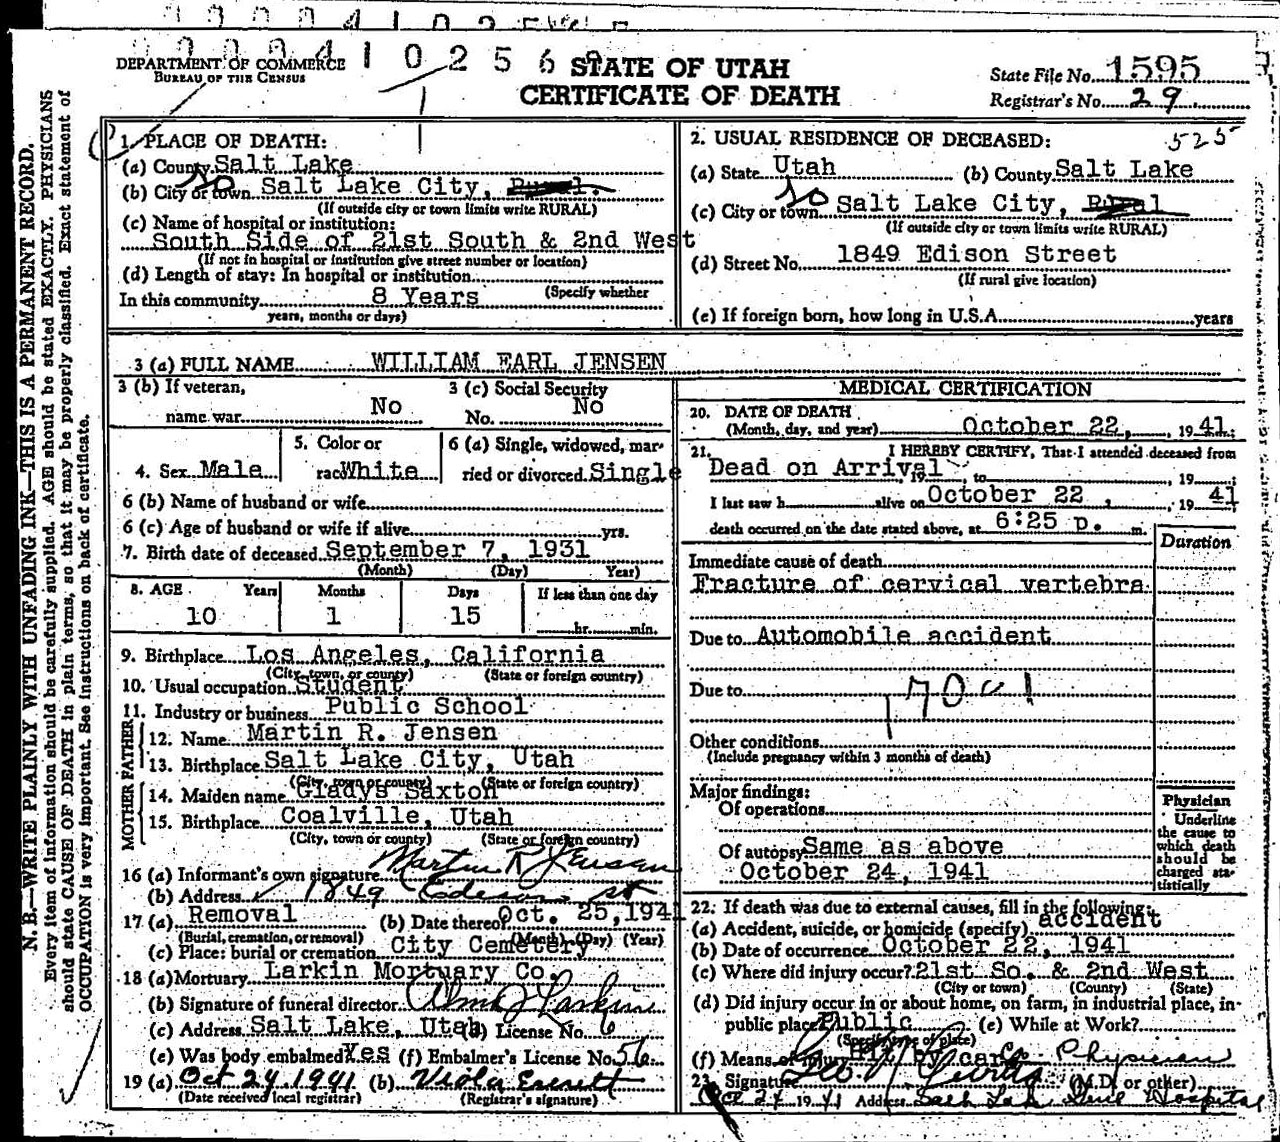 0 0 0 4 1 0 2 5 6
DEPARTMENT OF COMMERCE
BUREAU OF THE CENSUS
STATE OF UTAH
CERTIFICATE OF DEATH
State File No. 1595
Registrar's No. 29
N. B.—WRITE PLAINLY WITH UNFADING INK—THIS IS A PERMANENT RECORD.
Every item of information should be carefully supplied. AGE should be stated EXACTLY. PHYSICIANS
should state CAUSE OF DEATH in plain terms, so that it may be properly classified. Exact statement of
OCCUPATION is very important. See instructions on back of certificate.
1. PLACE OF DEATH:
(a) County Salt Lake
(b) City or town So Salt Lake City, Rural.
(If outside city or town limits write RURAL)
(c) Name of hospital or institution:
South Side of 21st South & 2nd West
(If not in hospital or institution give street number or location)
(d) Length of stay: In hospital or institution
(Specify whether
In this community 8 Years
years, months or days)
2. USUAL RESIDENCE OF DECEASED: 525
(a) State Utah (b) County Salt Lake
(c) City or town So Salt Lake City, Rural
(If outside city or town limits write RURAL)
(d) Street No. 1849 Edison Street
(If rural give location)
(e) If foreign born, how long in U.S.A. years
3 (a) FULL NAME WILLIAM EARL JENSEN
3 (b) If veteran, 3 (c) Social Security
name war No No. No
4. Sex Male 5. Color or race White 6 (a) Single, widowed, married or divorced Single
6 (b) Name of husband or wife
6 (c) Age of husband or wife if alive yrs.
7. Birth date of deceased September 7, 1931
(Month) (Day) (Year)
8. AGE Years Months Days If less than one day
10 1 15 hr. min.
9. Birthplace Los Angeles, California
(City, town, or county) (State or foreign country)
10. Usual occupation Student
11. Industry or business Public School
FATHER
12. Name Martin R. Jensen
13. Birthplace Salt Lake City, Utah
(City, town or county) (State or foreign country)
MOTHER
14. Maiden name Gladys Saxton
15. Birthplace Coalville, Utah
(City, town or county) (State or foreign country)
16 (a) Informant's own signature Martin R Jensen
(b) Address 1849 Edison St
17 (a) Removal (b) Date thereof Oct. 25, 1941
(Burial, cremation, or removal) (Month) (Day) (Year)
(c) Place: burial or cremation City Cemetery
18 (a) Mortuary Larkin Mortuary Co.
(b) Signature of funeral director Alma J Larkin
(c) Address Salt Lake, Utah (d) License No. 6
(e) Was body embalmed? Yes (f) Embalmer's License No. 56
19 (a) Oct 24, 1941 (b) Viola Everett
(Date received local registrar) (Registrar's signature)
MEDICAL CERTIFICATION
20. DATE OF DEATH
(Month, day, and year) October 22, 1941;
21. I HEREBY CERTIFY, That I attended deceased from
Dead on Arrival, 19 , to , 19 ;
I last saw h alive on October 22, 19 41
death occurred on the date stated above, at 6:25 p. m.
Duration
Immediate cause of death
Fracture of cervical vertebra
Due to Automobile accident
Due to 170c1
Other conditions
(Include pregnancy within 3 months of death)
Major findings:
Of operations
Of autopsy Same as above
October 24, 1941
Physician
Underline
the cause to
which death
should be
charged sta-
tistically
22. If death was due to external causes, fill in the following:
(a) Accident, suicide, or homicide (specify) accident
(b) Date of occurrence October 22, 1941
(c) Where did injury occur? 21st So. & 2nd West
(City or town) (County) (State)
(d) Did injury occur in or about home, on farm, in industrial place, in
public place? Public (e) While at Work?
(Specify type of place)
(f) Means of injury Hit by car Co. Physician
23. Signature Geo. N. Curtis (M.D. or other)
Oct 24 1941 Address Salt Lake Genl Hospital